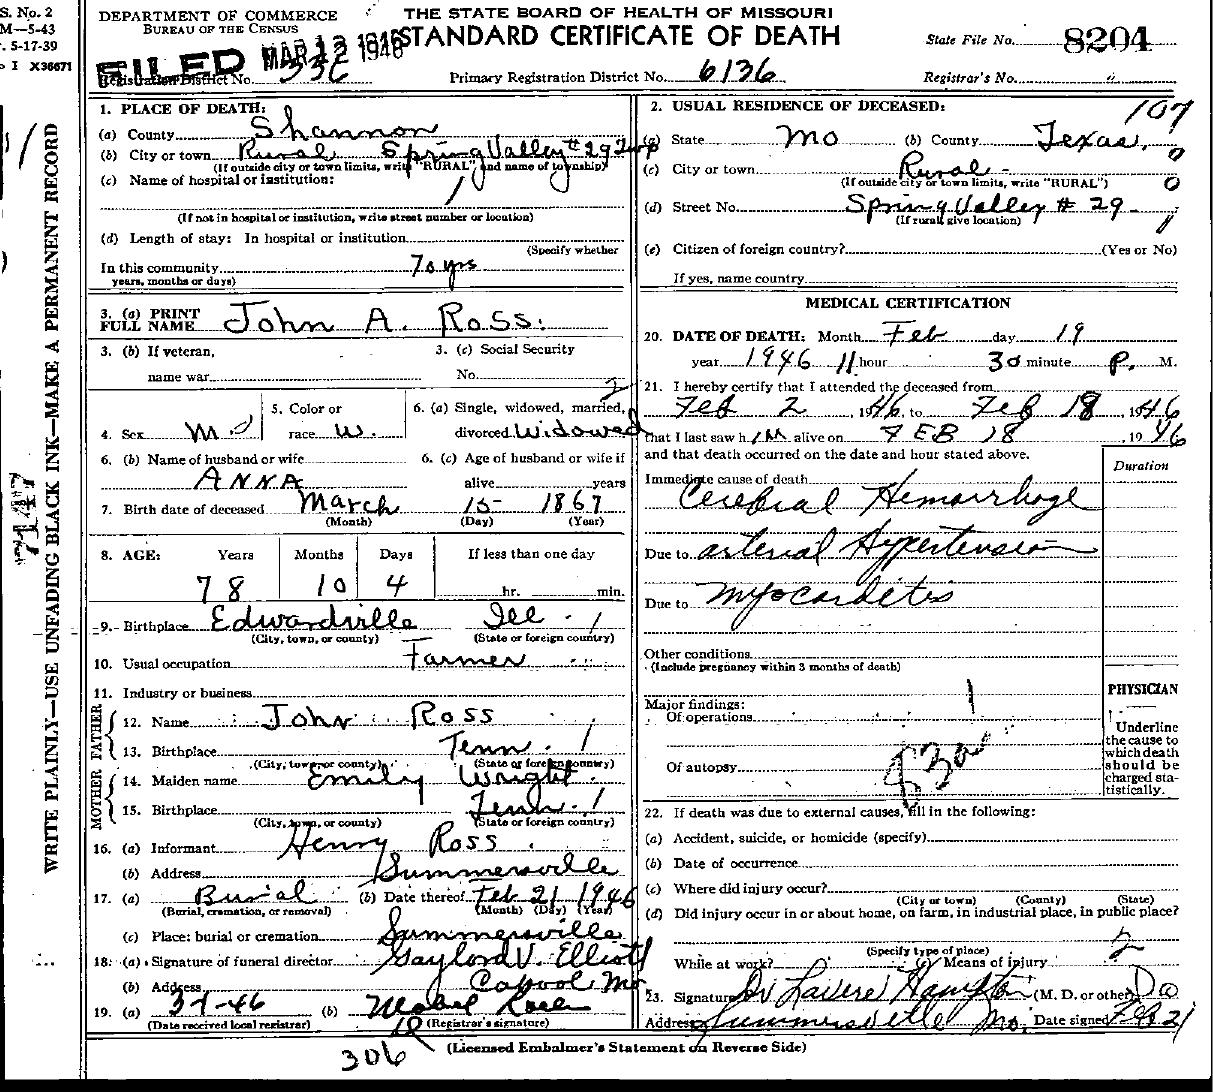 S. No. 2
M—5-43
5-17-39
I X36671
DEPARTMENT OF COMMERCE
BUREAU OF THE CENSUS
FILED MAR 12 1946
THE STATE BOARD OF HEALTH OF MISSOURI
STANDARD CERTIFICATE OF DEATH
State File No. 8204
Registration District No. 336
Primary Registration District No. 6136
Registrar's No.
WRITE PLAINLY—USE UNFADING BLACK INK—MAKE A PERMANENT RECORD
1. PLACE OF DEATH:
(a) County Shannon
(b) City or town Rural Spring Valley #29 Twp
(If outside city or town limits, write "RURAL" and name of township)
(c) Name of hospital or institution:
(If not in hospital or institution, write street number or location)
(d) Length of stay: In hospital or institution
(Specify whether
In this community 70 yrs
years, months or days)
3. (a) PRINT
FULL NAME John A. Ross.
3. (b) If veteran,
name war
3. (c) Social Security
No.
2
4. Sex M.
5. Color or
race W.
6. (a) Single, widowed, married,
divorced Widowed
6. (b) Name of husband or wife
ANNA
6. (c) Age of husband or wife if
alive years
7. Birth date of deceased March 15 1867
(Month) (Day) (Year)
8. AGE: Years Months Days If less than one day
78 10 4 hr. min.
9. Birthplace Edwardville Ill. 1
(City, town, or county) (State or foreign country)
10. Usual occupation Farmer
11. Industry or business
FATHER
12. Name John Ross
13. Birthplace Tenn. 1
(City, town, or county) (State or foreign country)
MOTHER
14. Maiden name Emily Wright
15. Birthplace Tenn. 1
(City, town, or county) (State or foreign country)
16. (a) Informant Henry Ross
(b) Address Summersville
17. (a) Burial (b) Date thereof Feb 21 1946
(Burial, cremation, or removal) (Month) (Day) (Year)
(c) Place: burial or cremation Summersville
18. (a) Signature of funeral director Gaylord V. Elliott
(b) Address Cabool Mo.
19. (a) 3-1-46 (b) Mabel
(Date received local registrar) (Registrar's signature)
306
2. USUAL RESIDENCE OF DECEASED: 107
(a) State Mo (b) County Texas
(c) City or town Rural
(If outside city or town limits, write "RURAL")
(d) Street No. Spring Valley # 29
(If rural, give location)
(e) Citizen of foreign country? (Yes or No)
If yes, name country
MEDICAL CERTIFICATION
20. DATE OF DEATH: Month Feb day 19
year 1946 11 hour 30 minute P. M.
21. I hereby certify that I attended the deceased from
Feb 2, 1946, to Feb 18, 1946
that I last saw h IM alive on FEB 18, 1946
and that death occurred on the date and hour stated above.
Duration
Immediate cause of death
Cerebral Hemorrhage
Due to arterial Hypertension
Due to myocarditis
Other conditions
(Include pregnancy within 3 months of death)
Major findings:
Of operations
Of autopsy
830
PHYSICIAN
Underline
the cause to
which death
should be
charged sta-
tistically.
22. If death was due to external causes, fill in the following:
(a) Accident, suicide, or homicide (specify)
(b) Date of occurrence
(c) Where did injury occur?
(City or town) (County) (State)
(d) Did injury occur in or about home, on farm, in industrial place, in public place?
2
(Specify type of place)
While at work? (e) Means of injury
23. Signature Dr Lavere Hampton (M. D. or other) Do
Address Summersville Mo. Date signed Feb 21
(Licensed Embalmer's Statement on Reverse Side)